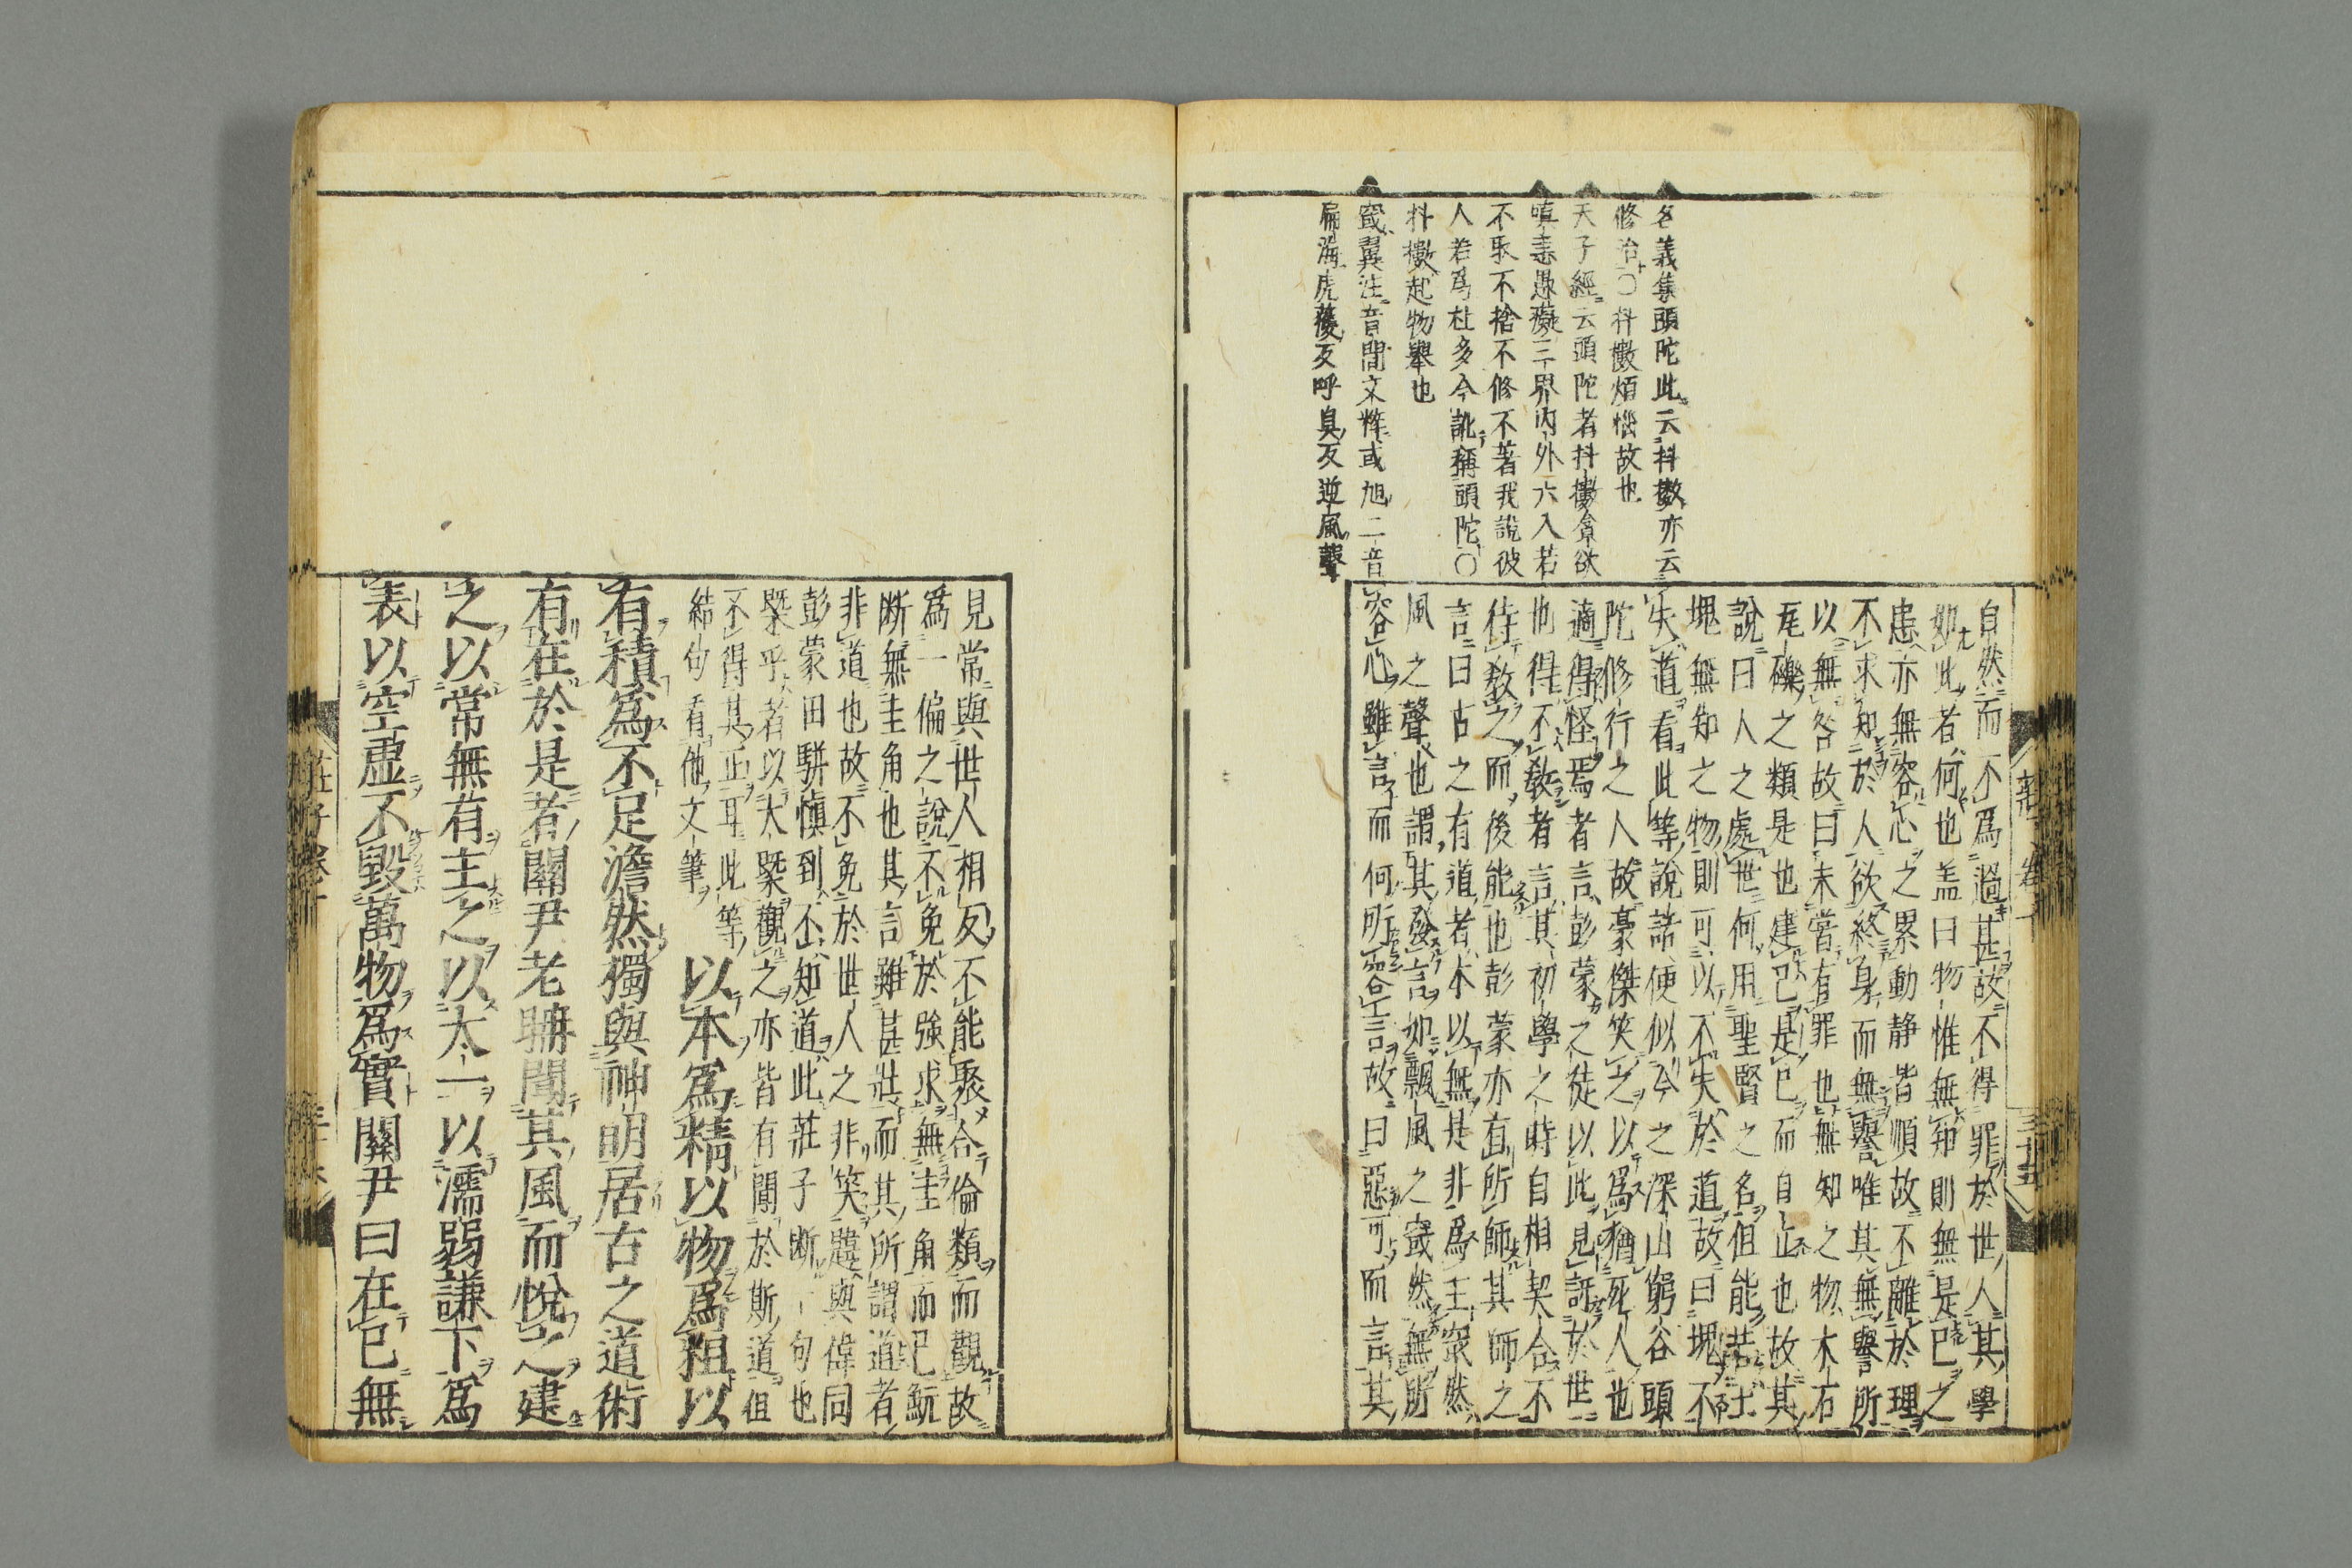 名義集頭陀此云抖擻亦云
修治〇抖擻煩惱故也
天子經云頭陀者抖擻貪欲
嗔恚愚癡三界內外六入若
不取不捨不修不著我說彼
人若爲杜多今訛稱頭陀〇
抖擻起物舉也
窢翼注音閴文粹或旭二音
向海虎 反呼臭反逆風聲
自然而不爲過甚故不得罪於世人其學
如此者何也盖曰物惟無知則無是己之
患亦無容心之累動静皆順故不離於理
不求知於人欲終身而無譽唯其無譽所
以無咎故曰未嘗有罪也無知之物木石
瓦礫之類是也建己是己而自止也故其
說曰人之處世何用聖賢之名但能若土
塊無知之物則可以不失於道故曰塊不
失道看此等說話便似今之深山窮谷頭
陀修行之人故豪傑笑之以爲猶死人也
適得怪焉者言彭蒙之徒以此見訝於世
也得不敎者言其初學之時自相契合不
待敎之而後能也彭蒙亦有所師其師之
言曰古之有道者本以無是非爲主窢然
風之聲也謂其發言如飄風之窢然無所
容心雖言而何所容言故曰惡可而言其
見常與世人相反不能聚合倫類而觀故
爲一偏之說不免於強求無圭角而已魭
断無圭角也其言雖甚壯而其所謂道者
非道也故不免於世人之非笑韙與偉同
彭蒙田駢愼到不知道此莊子断一句也
槩乎者以大槩觀之亦皆有聞於斯道但
不得其正耳此等
結句看他文筆
以本爲精以物爲粗以
有積爲不足澹然獨與神明居古之道術
有在於是者關尹老聃聞其風而悅之建
之以常無有主之以太一以濡弱謙下爲
表以空虛不毀萬物爲實關尹曰在己無